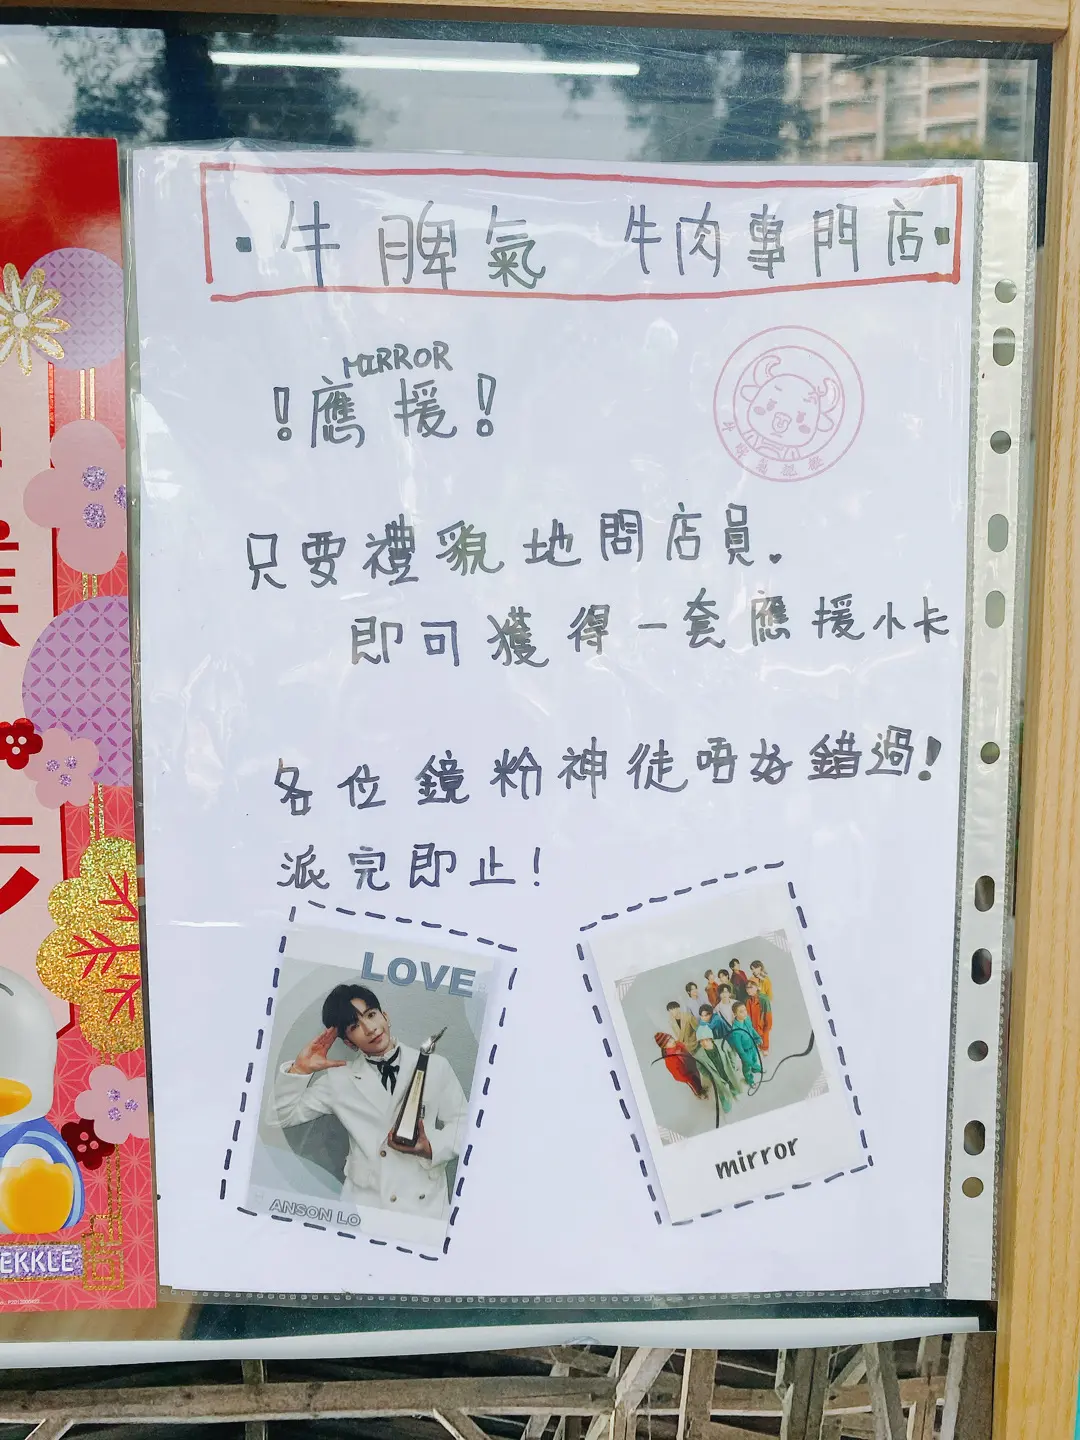 ・牛脾氣 牛肉專門店・
MIRROR
!應援!
只要禮貌地問店員.
即可獲得一套應援小卡
各位鏡粉神徒唔好錯過!
派完即止!
LOVE
ANSON LO
mirror
EKKLE